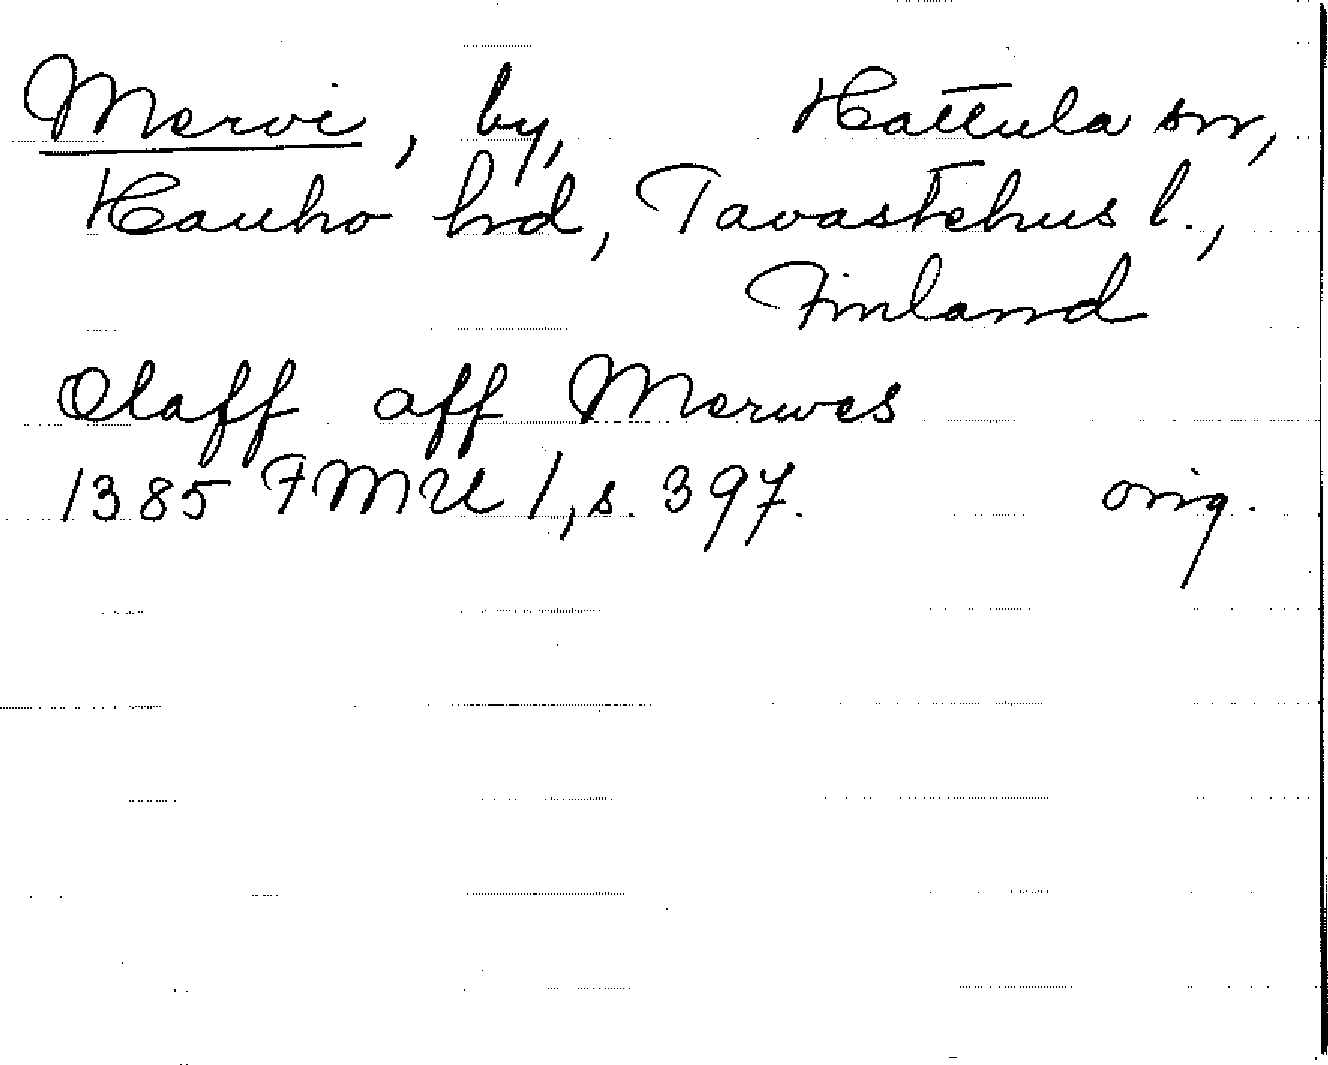 Mervi, by, Hattula sn,
Hauho hd, Tavastehus l.,
Finland
Olaff aff Merwes
1385 FMU 1, s. 397. orig.